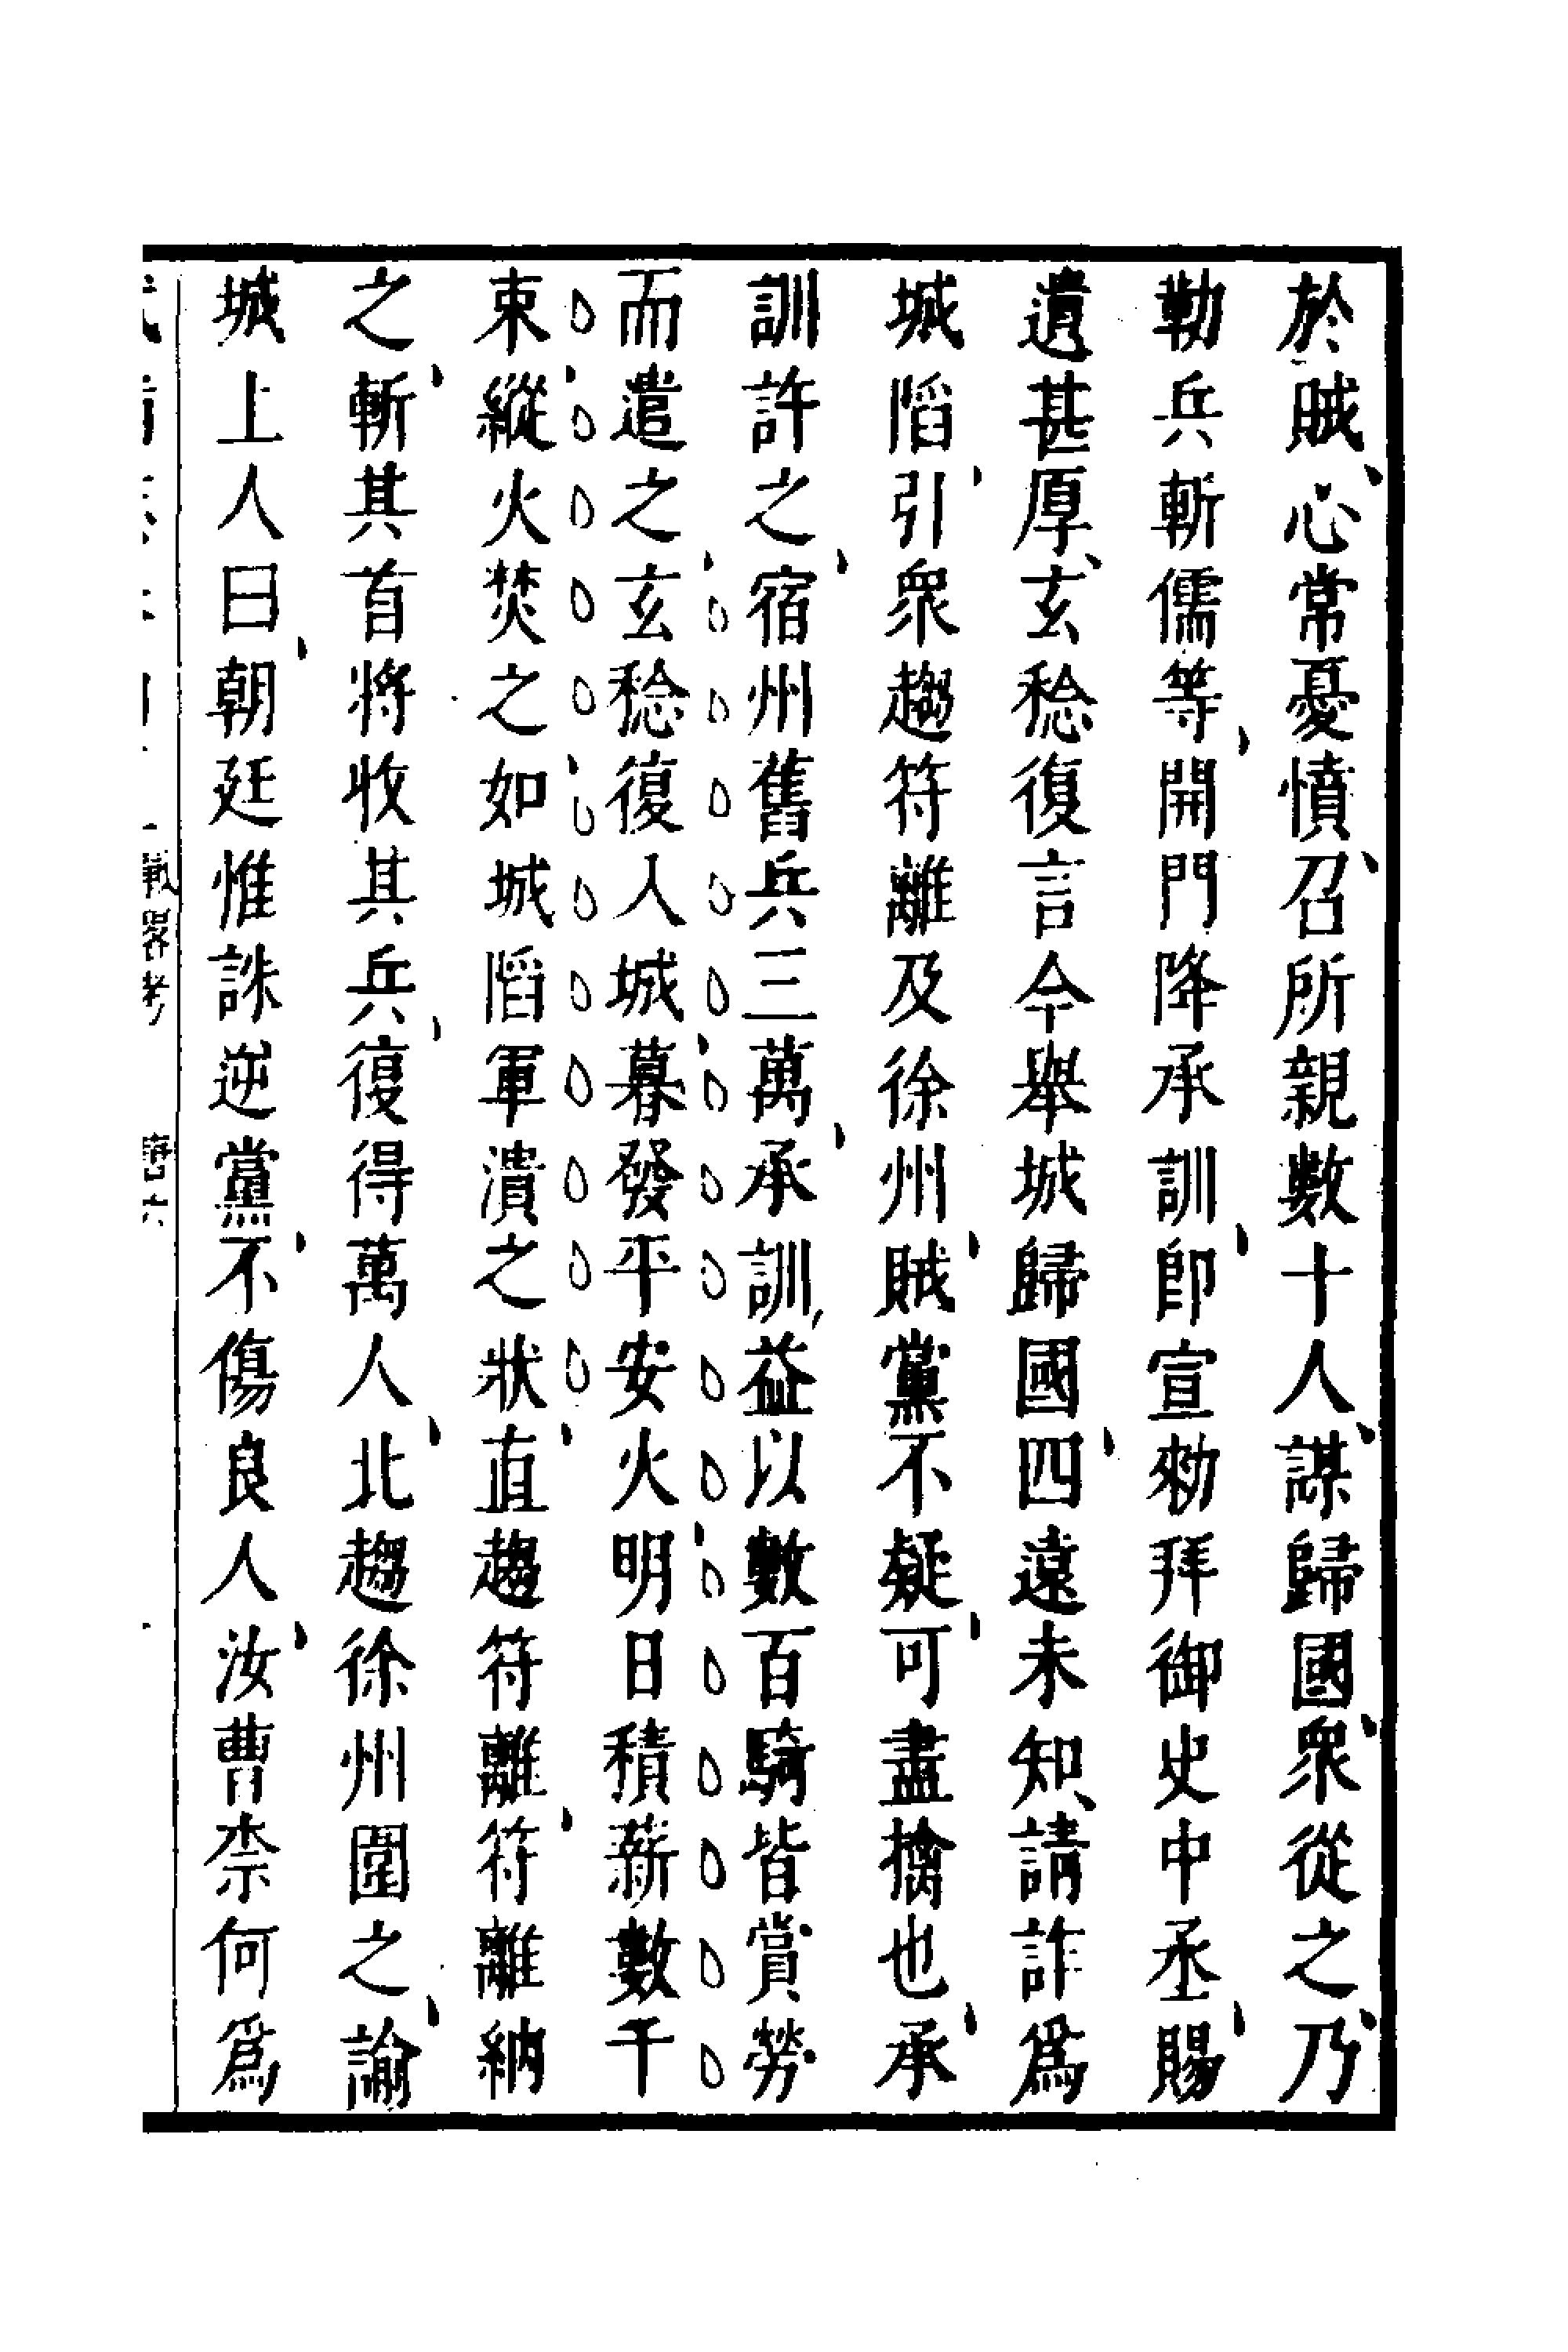 於賊心常憂憤召所親數十人謀歸國衆從之乃
勒兵斬儒等開門降承訓即宣勑拜御史中丞賜
遺甚厚玄稔復言今舉城歸國四遠未知請詐爲
城陷引衆趨符離及徐州賊黨不疑可盡擒也承
訓許之宿州舊兵三萬承訓益以數百騎皆賞勞
而遣之玄稔復入城暮發平安火明日積薪數千
束縱火焚之如城陷軍潰之狀直趨符離符離納
之斬其首將收其兵復得萬人北趨徐州圍之諭
城上人曰朝廷惟誅逆黨不傷良人汝曹柰何爲
戰畧考 唐六